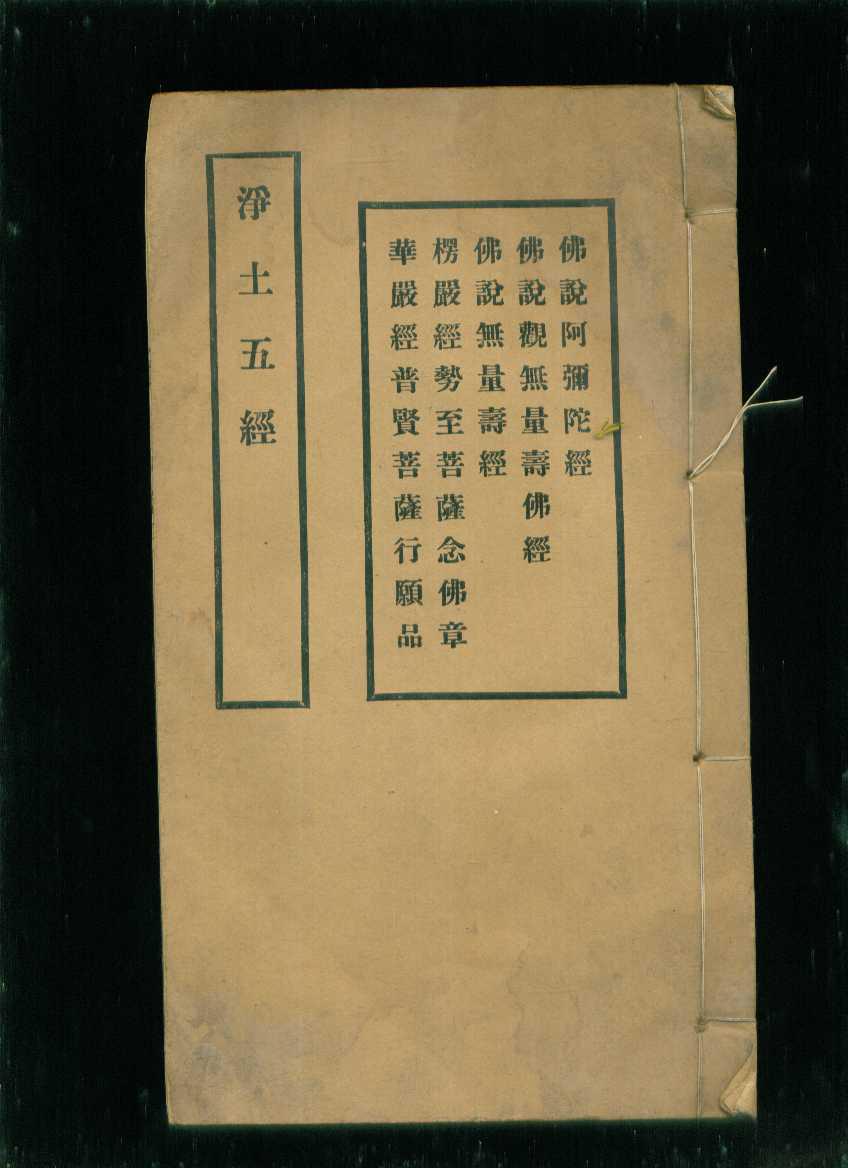 佛說阿彌陀經
佛說觀無量壽佛經
佛說無量壽經
楞嚴經勢至菩薩念佛章
華嚴經普賢菩薩行願品
淨土五經